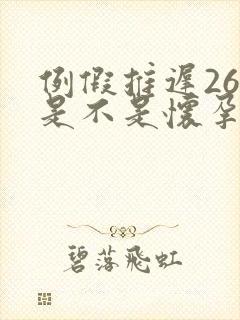 例假推遲26
是不是懷孕
碧落飛虹